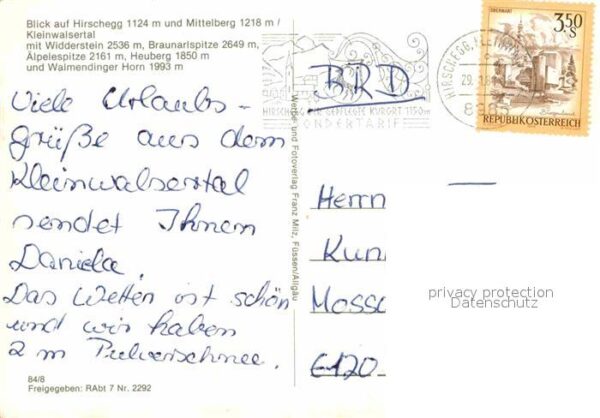 Blick auf Hirschegg 1124 m und Mittelberg 1218 m /
Kleinwalsertal
mit Widderstein 2536 m, Braunarlspitze 2649 m,
Älpelespitze 2161 m, Heuberg 1850 m
und Walmendinger Horn 1993 m
Viele Urlaubs-
grüße aus dem
Kleinwalsertal
sendet Ihnen
Daniela.
Das Wetter ist schön
und wir haben
2 m Pulverschnee.
84/8
Freigegeben: RAbt 7 Nr. 2292
Verlag und Fotoverlag Franz Milz, Füssen/Allgäu
BRD
HIRSCHEGG DER GEPFLEGTE KURORT 1150m
SONDERTARIF
HIRSCHEGG, KLEINW
29.
3,50
S
REPUBLIK ÖSTERREICH
Herrn
Kun
Mosse
6120
privacy protection
Datenschutz